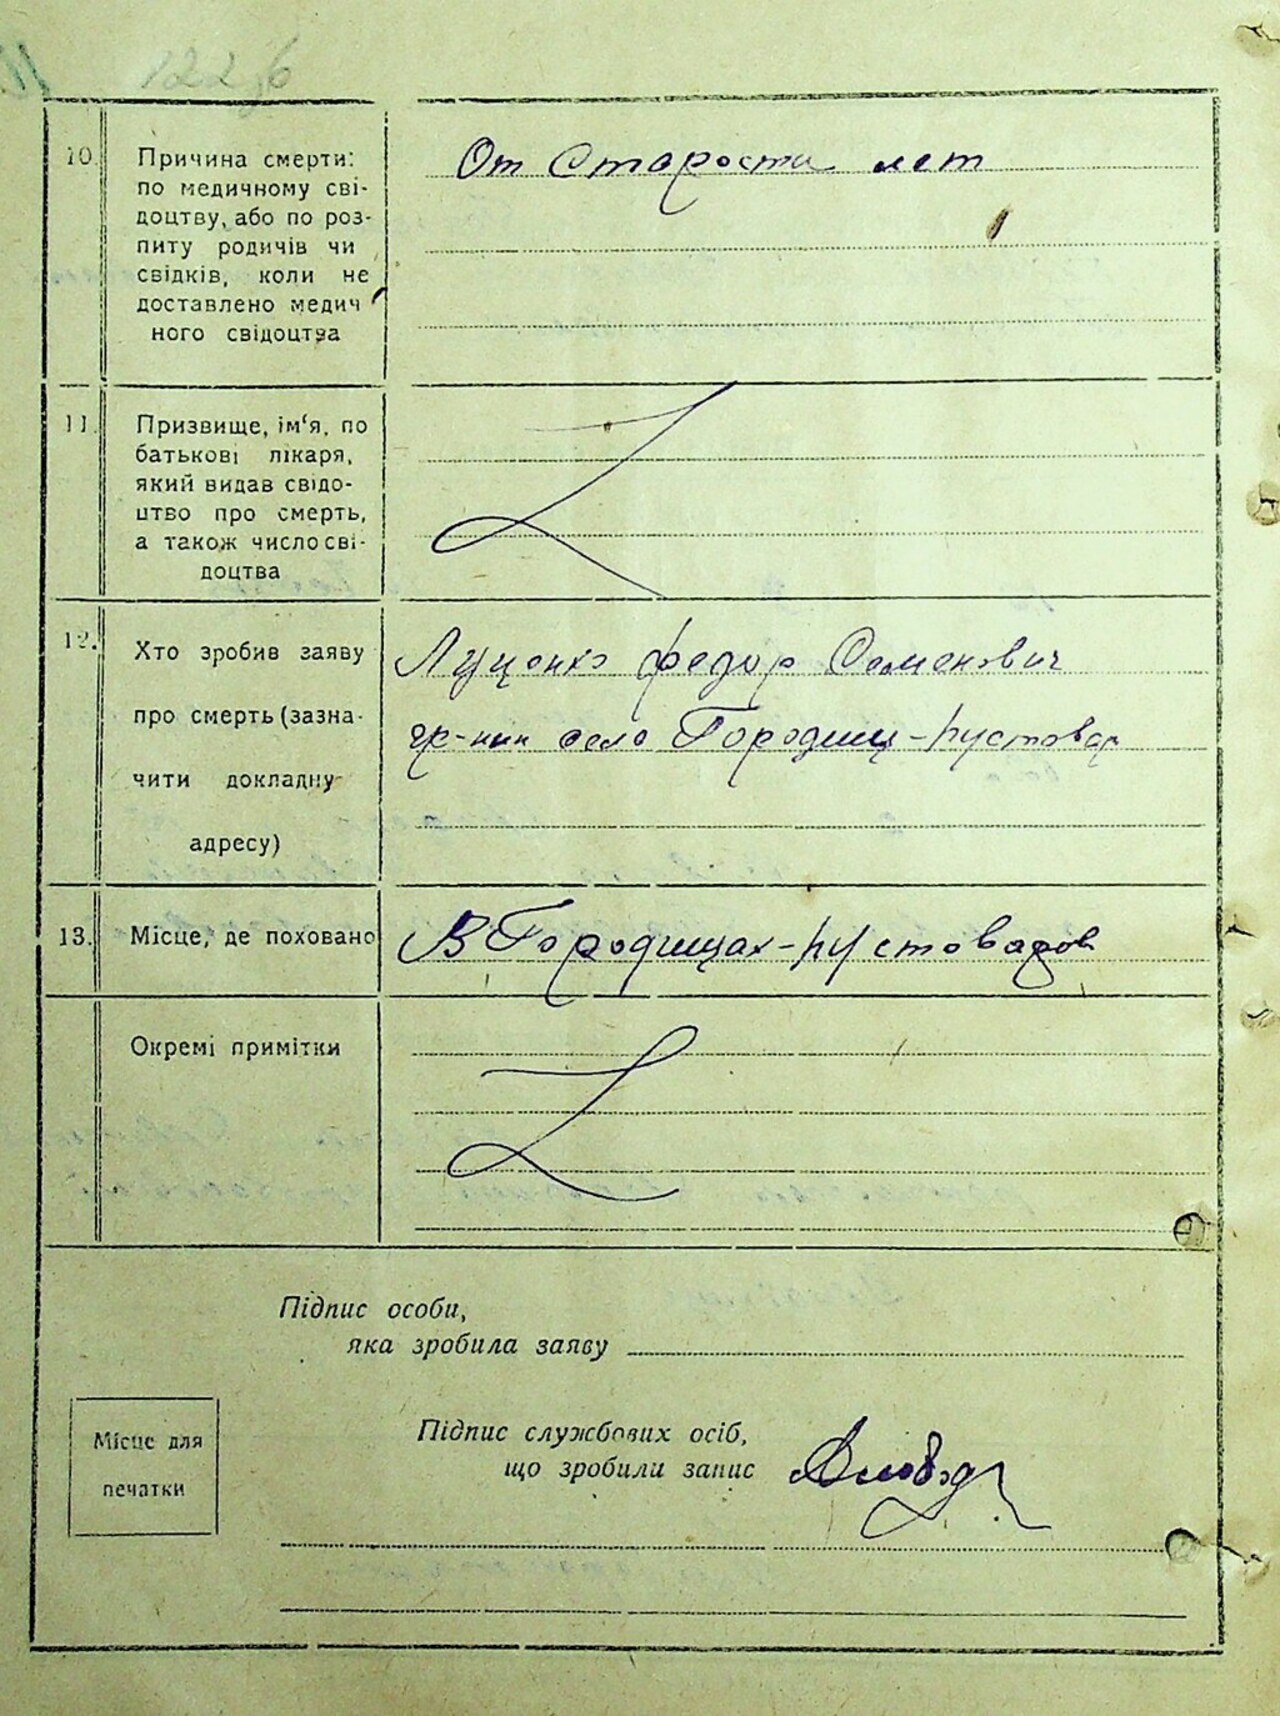 122
10. Причина смерти:
по медичному сві-
доцтву, або по роз-
питу родичів чи
свідків, коли не
доставлено медич
ного свідоцтва
От Старости лет
11. Призвище, ім‘я, по
батькові лікаря,
який видав свідо-
цтво про смерть,
а також число сві-
доцтва
12. Хто зробив заяву
про смерть (зазна-
чити докладну
адресу)
Луценко Федор Семенович
гр-нин село Городищ-Пустовар
13. Місце, де поховано
В Городищах-Пустоваров
Окремі примітки
Підпис особи,
яка зробила заяву
Місце для
печатки
Підпис службових осіб,
що зробили запис